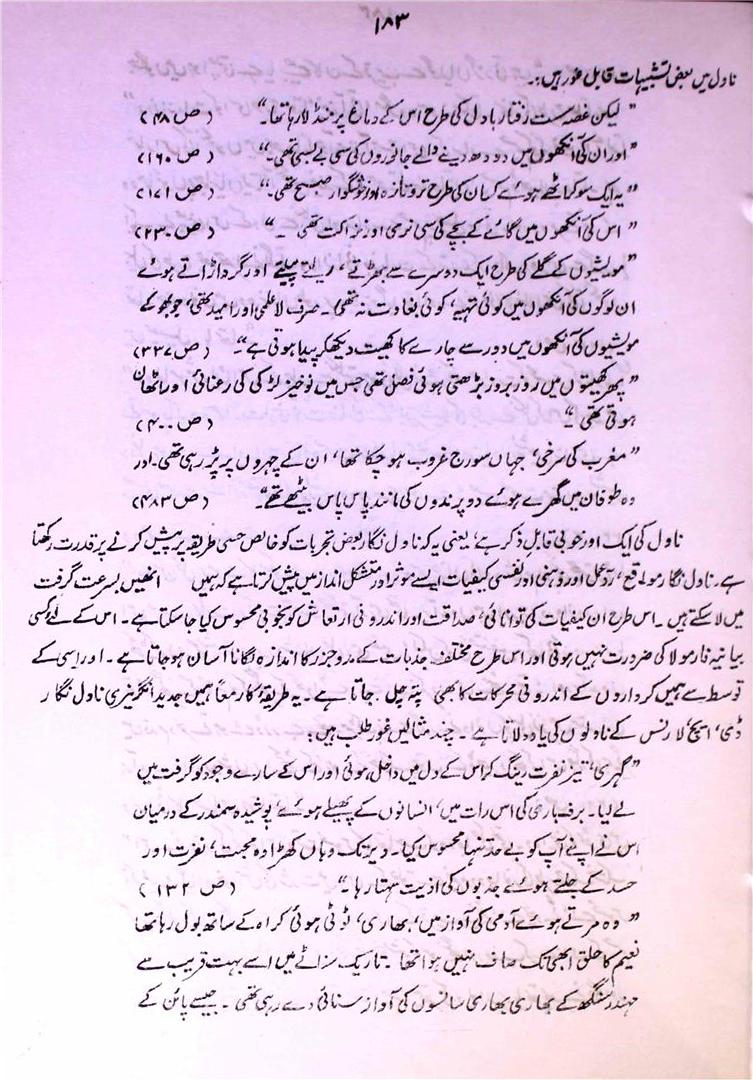 ۱۸۳
ناول میں بعض تشبیہات قابل غور ہیں:۔
" لیکن غصہ سست رفتار بادل کی طرح اس کے دماغ پر منڈلا رہا تھا۔" (ص ۴۸)
" اور ان کی آنکھوں میں دودھ دینے والے جانوروں کی سی بے بسی تھی۔" (ص ۱۶۰)
" یہ ایک سوکر اٹھے ہوئے کسان کی طرح تروتازہ اور خوشگوار صبح تھی۔" (ص ۱۷۱)
" اس کی آنکھوں میں گائے کے بچے کی سی نرمی اور نزاکت تھی ۔" (ص ۲۳۰)
" مویشیوں کے گلے کی طرح ایک دوسرے سے بھڑتے، ریلتے پیلتے اور گرد اڑاتے ہوئے
ان لوگوں کی آنکھوں میں کوئی تہیہ، کوئی بغاوت نہ تھی۔ صرف لاعلمی اور امید تھی، جو بھوکے
مویشیوں کی آنکھوں میں دور سے چارے کا کھیت دیکھکر پیدا ہوتی ہے"۔ (ص ۳۳۷)
" پھر کھیتوں میں روز بروز بڑھتی ہوئی فصل تھی جس میں نوخیز لڑکی کی رعنائی اور اٹھان
ہوتی تھی"۔ (ص ۴۰۰)
" مغرب کی سرخی، جہاں سورج غروب ہو چکا تھا، ان کے چہروں پر پڑ رہی تھی۔ اور
وہ طوفان میں گھرے ہوئے دو پرندوں کی مانند پاس پاس بیٹھے تھے"۔ (ص ۴۸۳)
ناول کی ایک اور خوبی قابل ذکر ہے، یعنی یہ کہ ناول نگار بعض تجربات کو خالص حسی طریقہ پر پیش کرنے پر قدرت رکھتا
ہے۔ ناول نگار مواقع، ردعمل اور ذہنی اور نفسی کیفیات ایسے موثر اور متشکل انداز میں پیش کرتا ہے کہ ہیں انھیں بسرعت گرفت
میں لا سکتے ہیں۔ اس طرح ان کیفیات کی توانائی، صداقت اور اندرونی ارتعاش کو بخوبی محسوس کیا جا سکتا ہے۔ اس کے لئے کسی
بیانیہ فارمولا کی ضرورت نہیں ہوتی اور اس طرح مختلف جذبات کے مدوجزر کا اندازہ لگانا آسان ہو جاتا ہے۔ اور اسی کے
توسط سے ہمیں کرداروں کے اندرونی محرکات کا بھی پتہ چل جاتا ہے۔ یہ طریقۂ کار معاً ہمیں جدید انگریزی ناول نگار
ڈی، ایچ، لارنس کے ناولوں کی یاد دلاتا ہے۔ چند مثالیں غور طلب ہیں:
" گہری، تیز نفرت رینگ کر اس کے دل میں داخل ہوئی اور اس کے سارے وجود کو گرفت میں
لے لیا۔ برف باری کی اس رات میں، انسانوں کے پھیلے ہوئے، پوشیدہ سمندر کے درمیان
اس نے اپنے آپ کو بے حد تنہا محسوس کیا۔ دیر تک وہاں کھڑا وہ محبت، نفرت اور
حسد کے جلتے ہوئے جذبوں کی اذیت سہتا رہا۔" (ص ۱۳۲)
" وہ مرتے ہوئے آدمی کی آواز میں، بھاری، ٹوٹی ہوئی کراہ کے ساتھ بول رہا تھا
نعیم کا حلق ابھی تک صاف نہیں ہوا تھا۔ تاریک سناٹے میں اسے بہت قریب سے
مہندر سنگھ کے بھاری بھاری سانسوں کی آواز سنائی دے رہی تھی۔ جیسے پائن کے